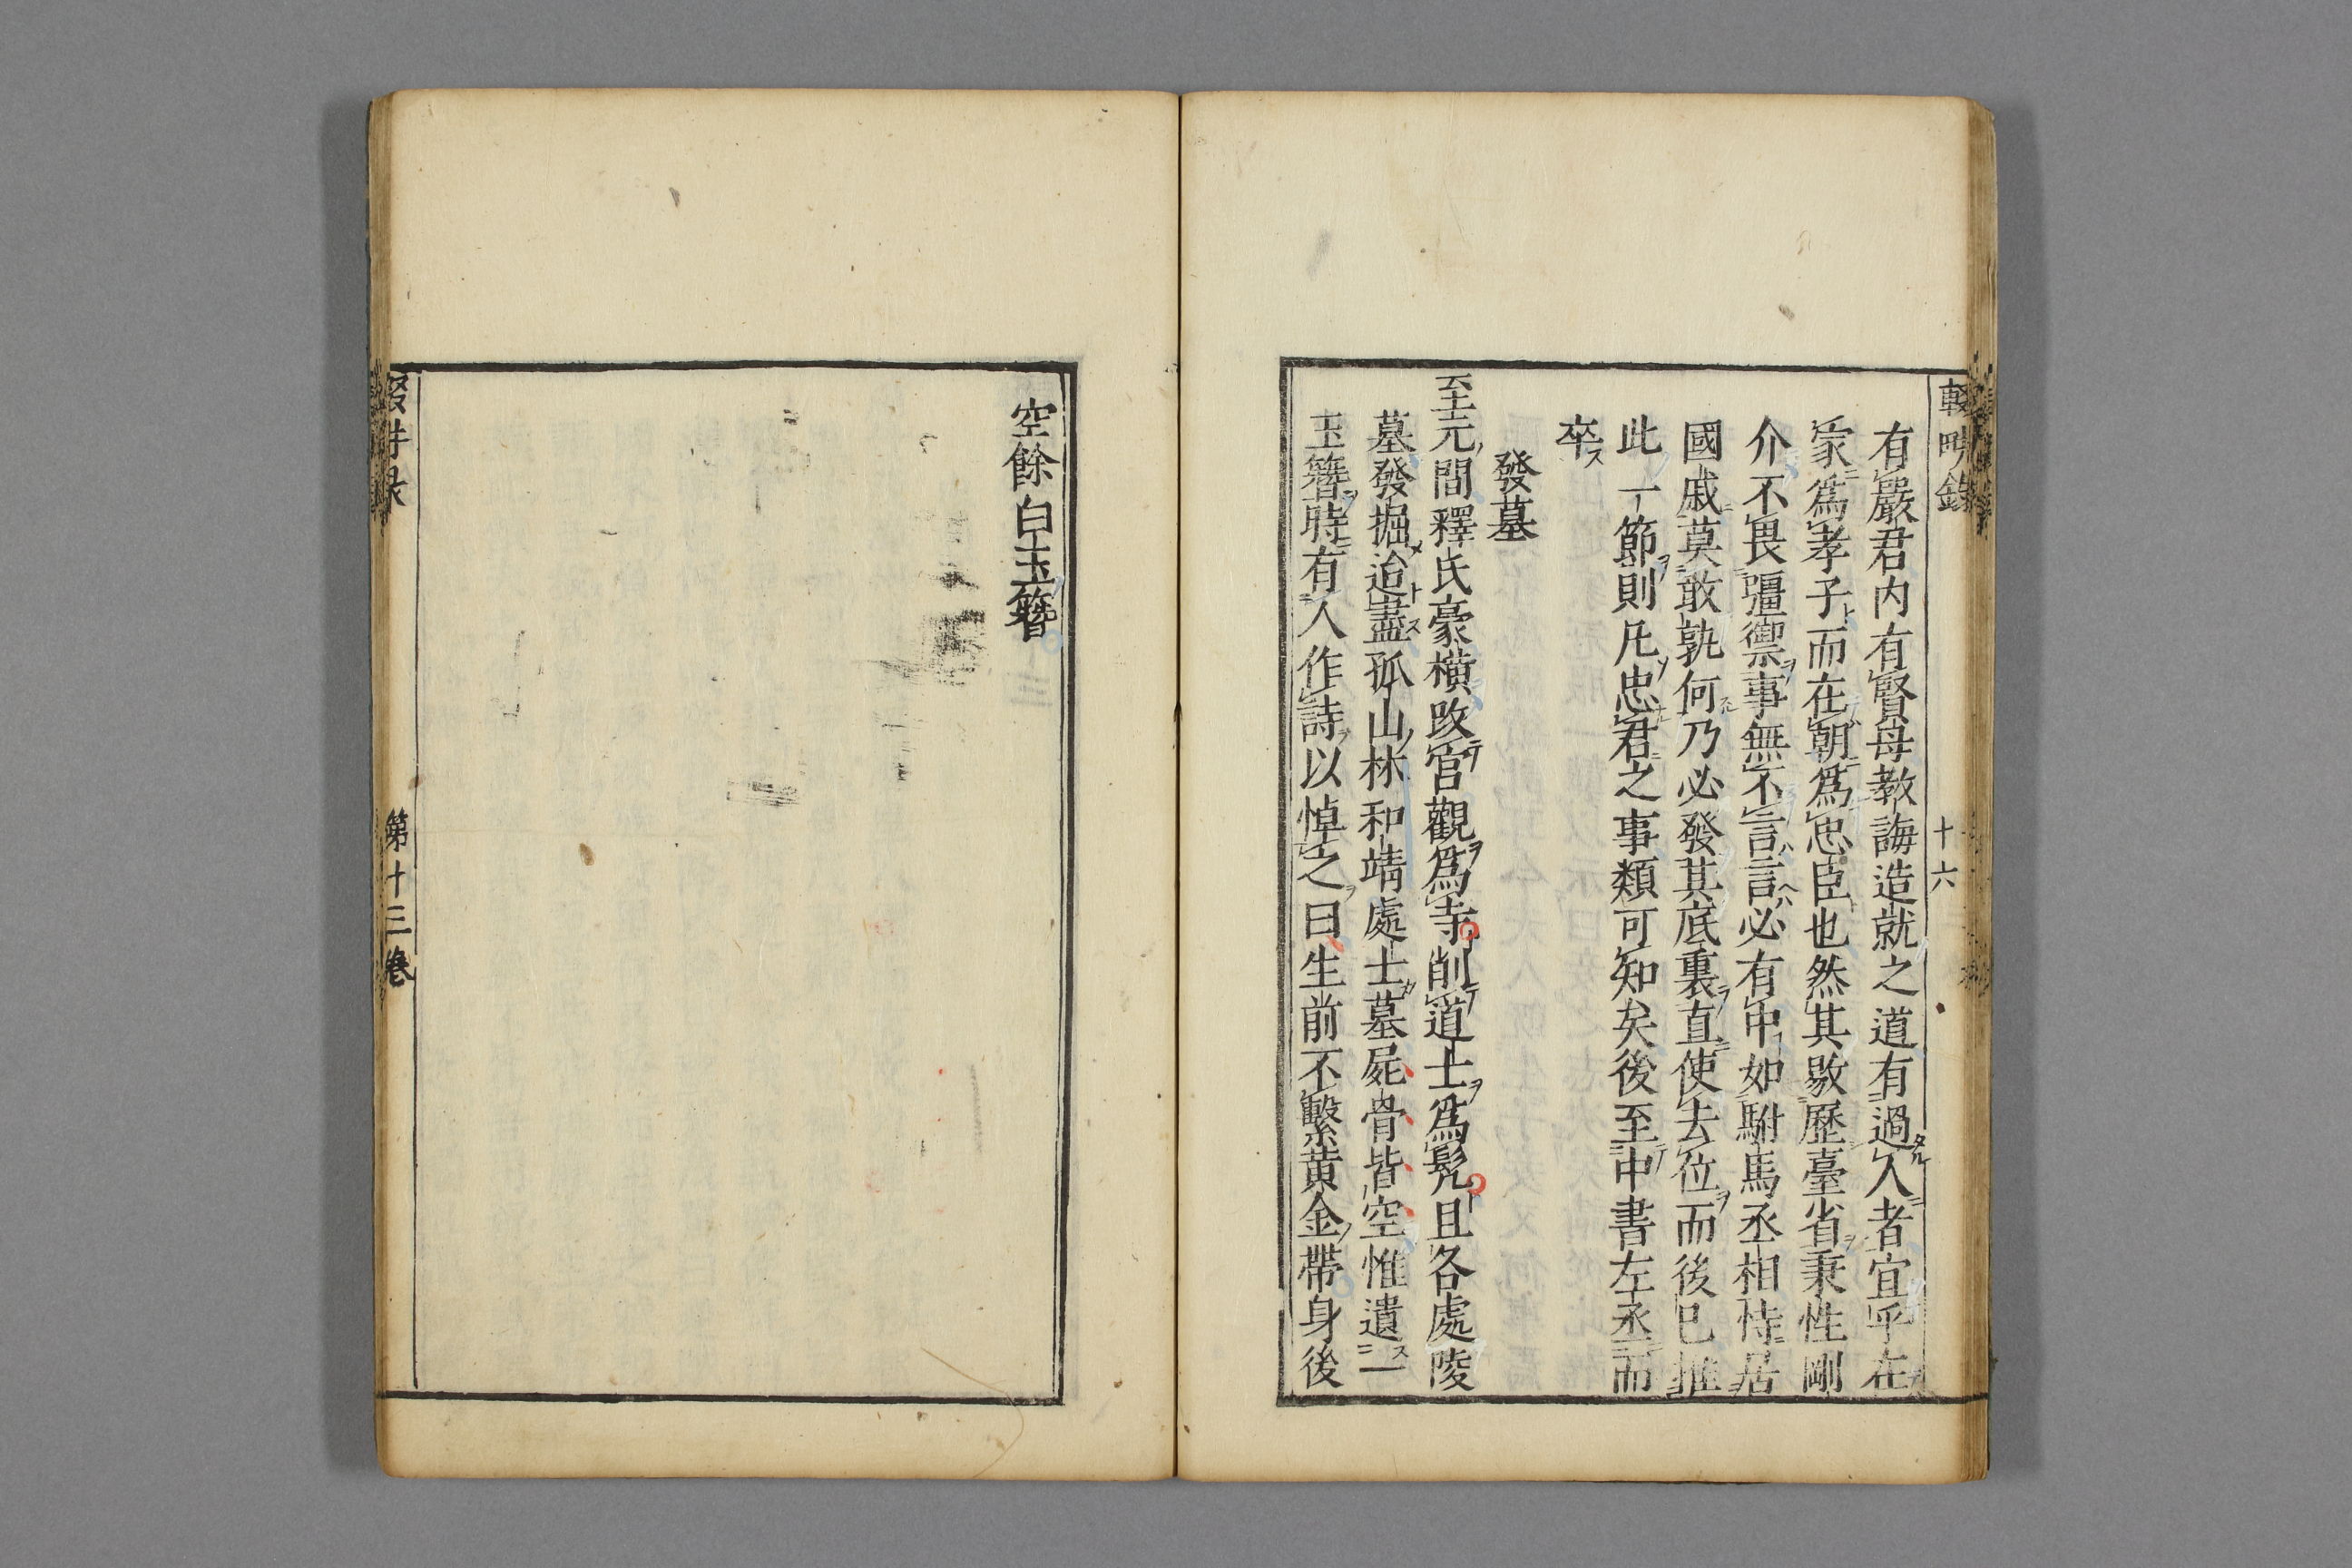 輟畊錄
十六
有嚴君内有賢母教誨造就之道有過人者宜乎在
家爲孝子而在朝爲忠臣也然其敭歷臺省秉性剛
介不畏彊禦事無不言言必有中如駙馬丞相恃居
國戚莫敢孰何乃必發其底裏直使去位而後已推
此一節則凡忠君之事類可知矣後至中書左丞而
卒
發墓
至元間釋氏豪橫改宮觀爲寺削道士爲髠且各處陵
墓發掘迨盡孤山林和靖處士墓屍骨皆空惟遺一
玉簪時有人作詩以悼之曰生前不繫黄金帶身後
空餘白玉簪
第十三卷